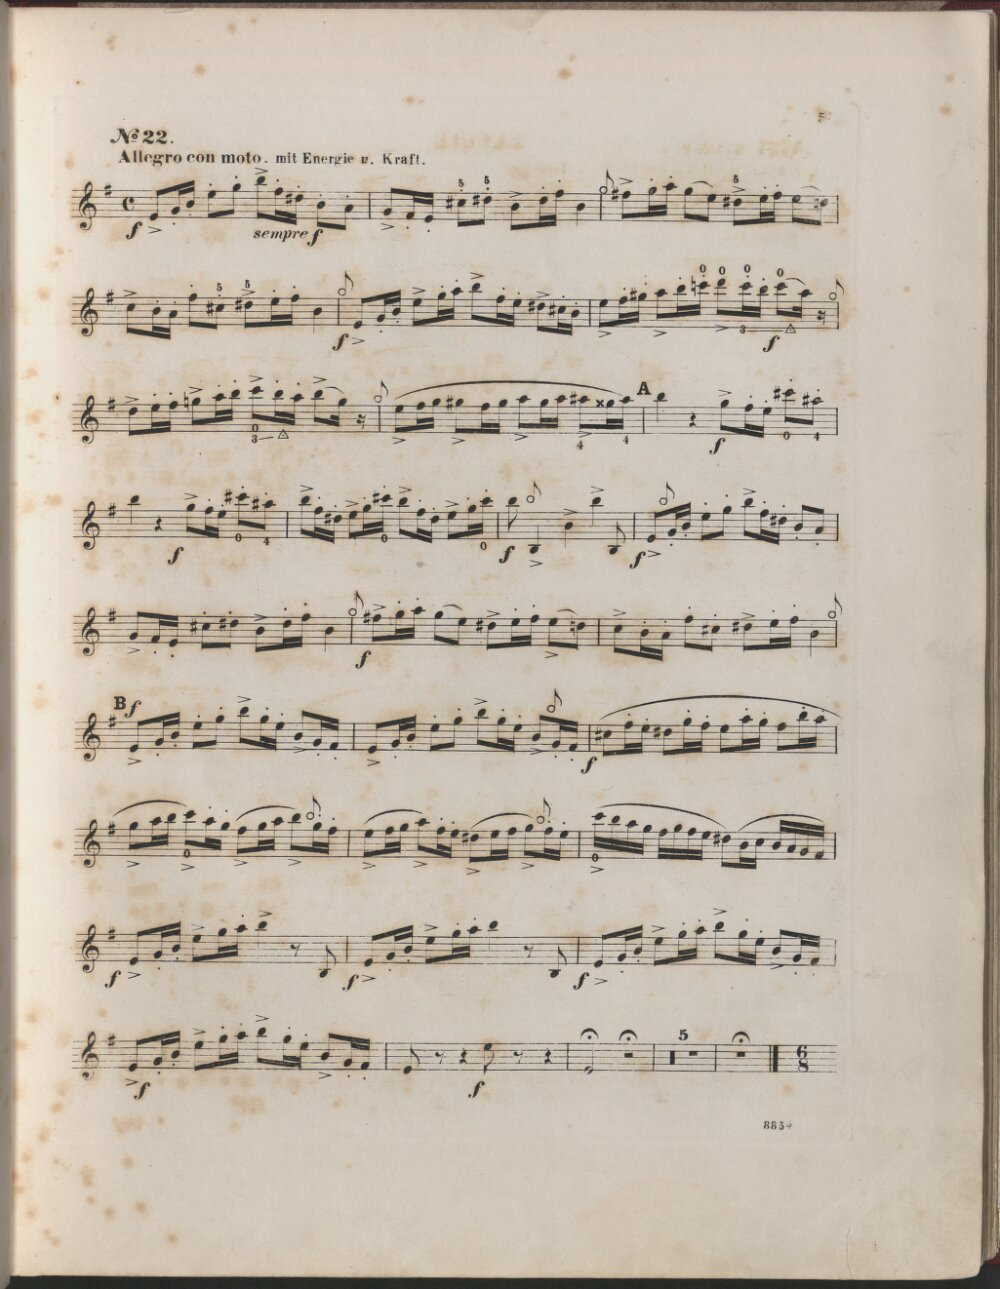 № 22.
Allegro con moto. mit Energie u. Kraft.
5 5 5
f sempre f
5 5 0 0 0 0
f 3 f
A
0 3 4 4 f 0 4
f 0 4 0 0 f f
f
B f
f
0 0
f f f
5
f f
6
8
8854